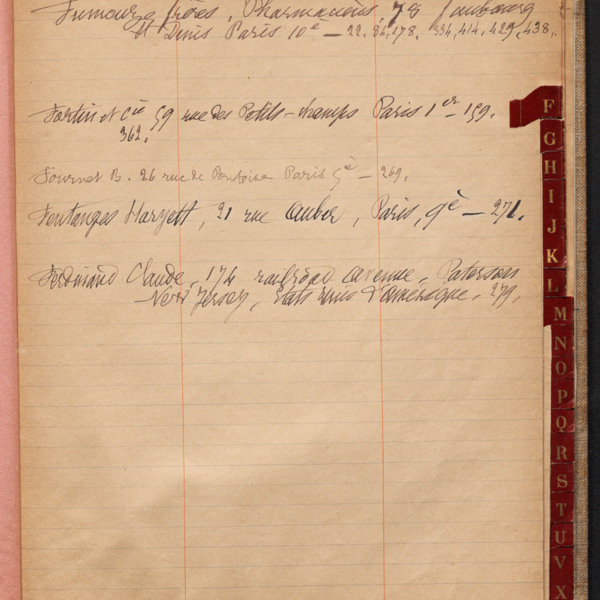 Fumouze frères, Pharmaciens, 78 Faubourg
St Denis Paris 10e — 22, 86, 178, 334, 414, 429, 438,
Fortin et Cie 59 rue des Petits-champs Paris 1er - 159.
362.
Fournet B. 26 rue de Pontoise Paris 5e — 269.
Fontanges Maryett, 21 rue Auber, Paris, 9e — 271.
Ferdinand Claude, 174 railroad avenue, Paterson
New Jersey, Etats Unis d'Amérique, 279,
F
G
H
I
J
K
L
M
N
O
P
Q
R
S
T
U
V
X